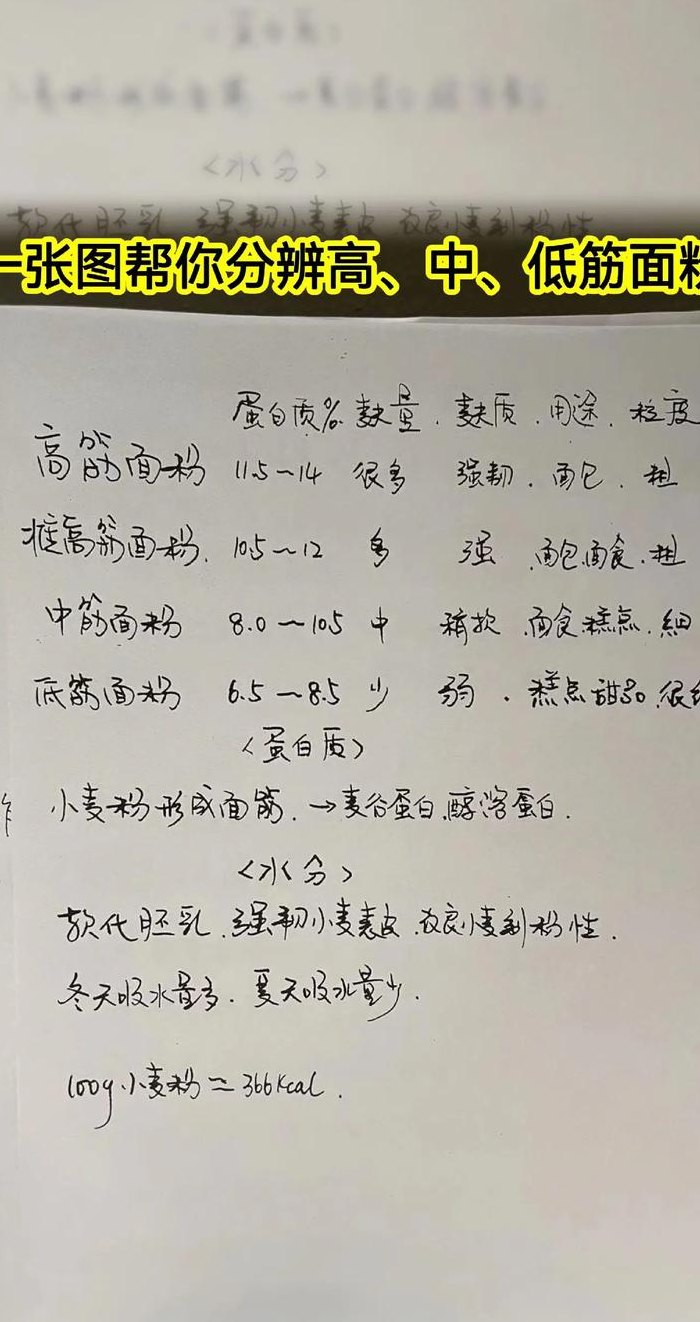 <水分>
一张图帮你分辨高、中、低筋面粉
蛋白质% 麸量. 麸质. 用途. 粒度
高筋面粉 11.5~14 很多 强韧. 面包. 粗
准高筋面粉. 10.5~12 多 强 .面包面食.粗
中筋面粉 8.0~10.5 中 稍软.面食糕点.细
低筋面粉 6.5~8.5 少 弱. 糕点甜品.很细
<蛋白质>
小麦粉形成面筋.→麦谷蛋白.醇溶蛋白.
<水分>
软化胚乳.强韧小麦麦皮.改良小麦制粉性.
冬天吸水量多.夏天吸水量少.
100g小麦粉≈366kcal.